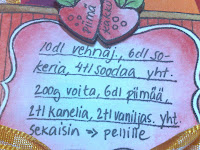 Piimä kakku
10dl vehnäj., 6dl so-
keria, 4tl soodaa yht.
200g voita, 6dl piimää,
2tl kanelia, 2tl vaniljas. yht.
sekaisin => pellille